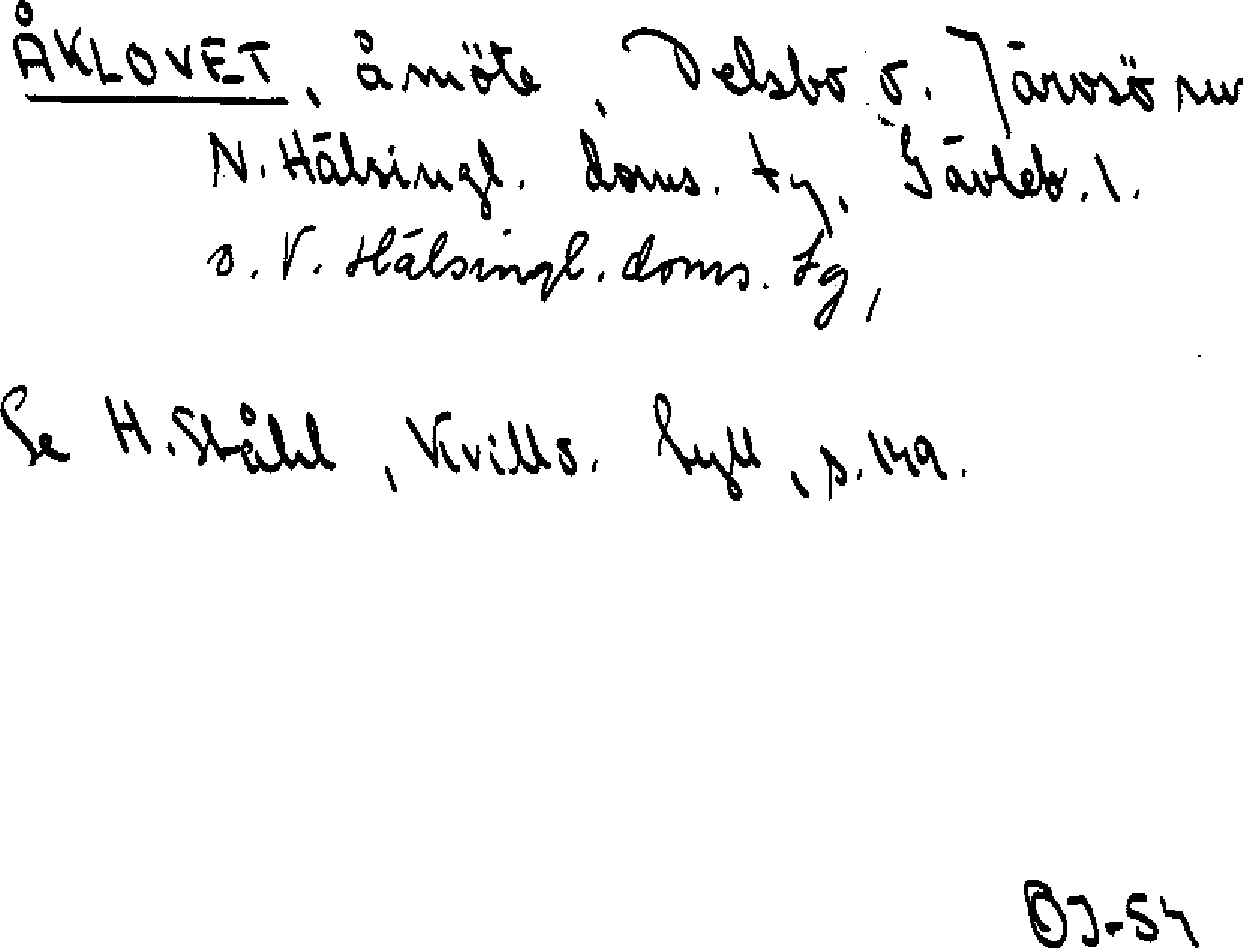 ÅKLOVET, åmöte, Delsbo o. Järvsö snr
N. Hälsingl. doms. tg, Gävleb. l.
o. V. Hälsingl. doms. tg,
Se H. Ståhl, Kvill o. Syll, s. 149.
OJ-54